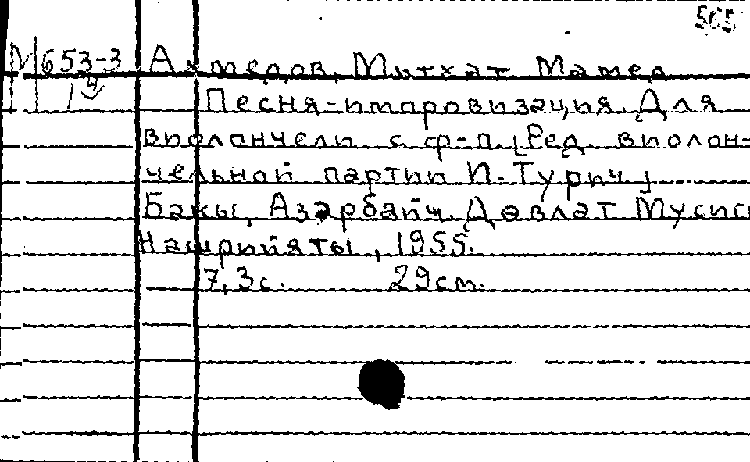 565
М 653-3 Ахмедов, Митхат Мамед
4
Песня-импровизация. Для
виолончели с ф-п. [Ред. виолон-
чельной партии И. Турич]
Бакы, Азәрбайч. Девлат Мусиги
Нашрийяты, 1955.
7, 3 с. 29 см.